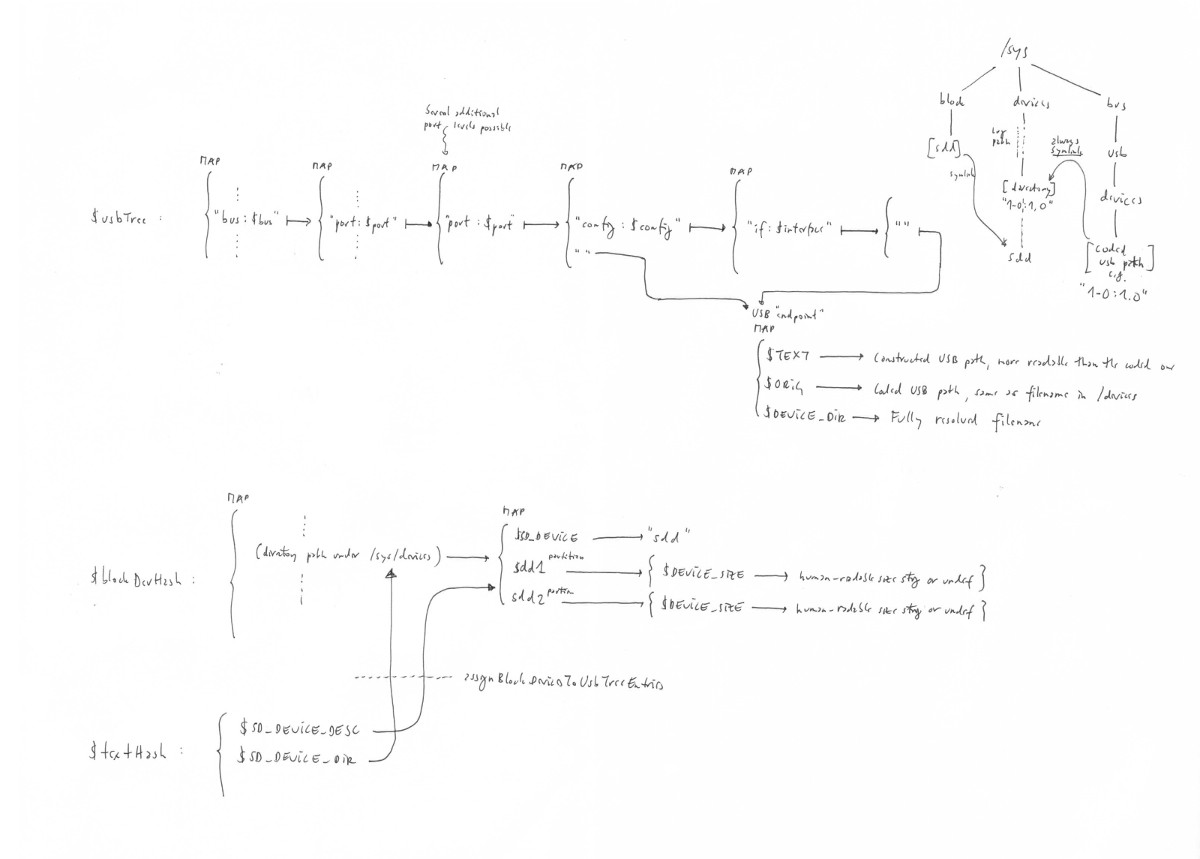 /sys
block devices bus
Several additional
port levels possible
long
path
always
symlinks
[sdd]
usb
symlink
[directory]
"1-0:1.0"
devices
sdd
[coded
usb path]
e.g.
"1-0:1.0"
MAP MAP MAP MAP MAP
$usbTree : "bus:$bus" "port:$port" "port:$port" "config:$config" "if:$interface" ""
""
USB "endpoint"
MAP
$TEXT Constructed USB path, more readable than the coded one
$ORIG Coded USB path, same as filename in /devices
$DEVICE_DIR Fully resolved filename
MAP
MAP
$SD_DEVICE "sdd"
(directory path under /sys/devices)
$blockDevHash :
sdd1 partition { $DEVICE_SIZE human-readable size string or undef }
sdd2 partition { $DEVICE_SIZE human-readable size string or undef }
assignBlockDevicesToUsbTreeEntries
$txtHash :
$SD_DEVICE_DESC
$SD_DEVICE_DIR